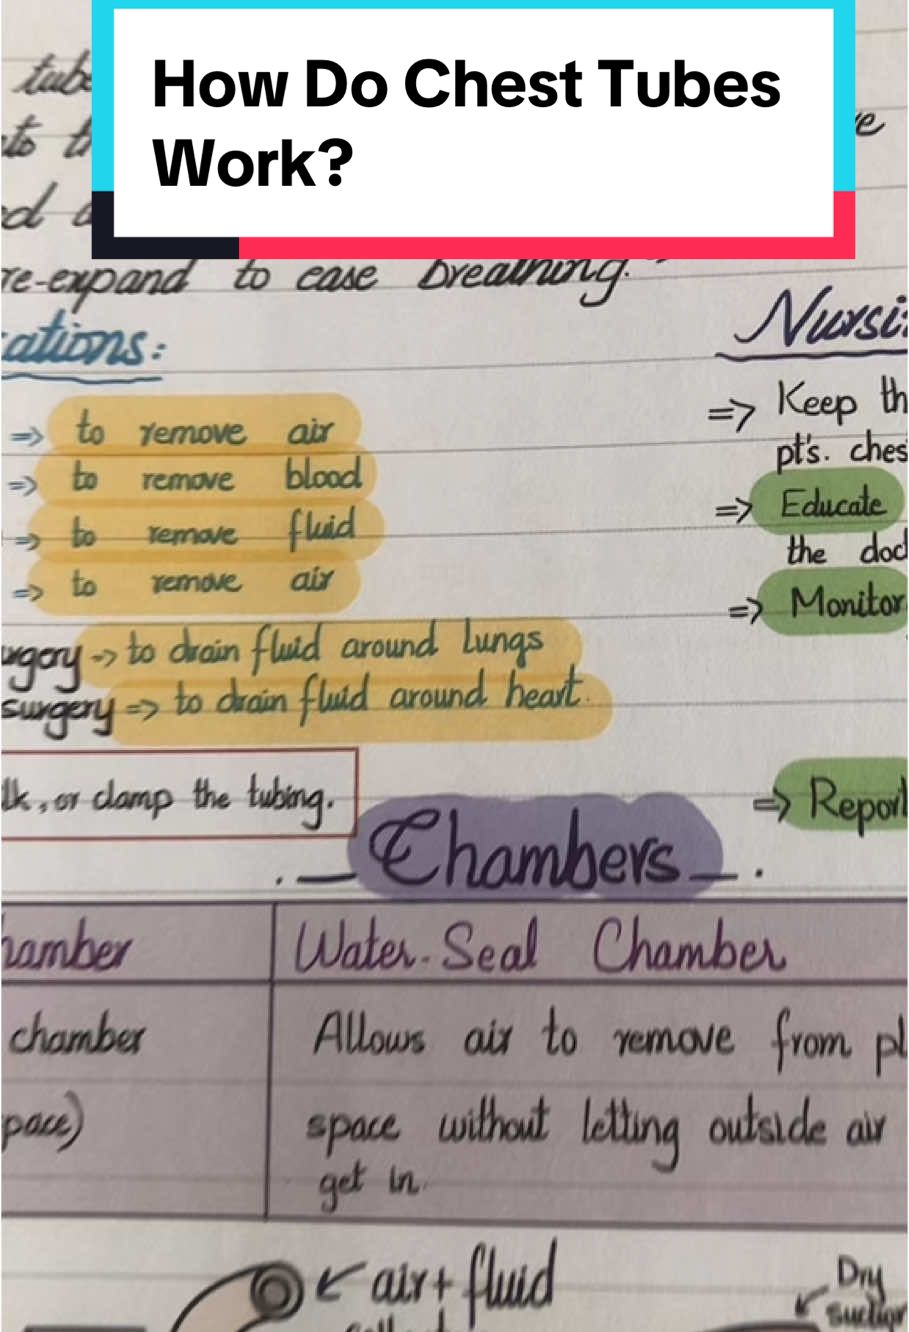 How Do Chest Tubes
Work?
tube
to th
re
ed a
re-expand to ease breathing."
ations:
Nursi
=> to remove air
=> to remove blood
=> to remove fluid
=> to remove air
=> Keep th
pt's. ches
=> Educate
the doc
=> Monitor
urgery -> to drain fluid around lungs
surgery => to drain fluid around heart.
lk, or clamp the tubing.
=> Report
Chambers
hamber
Water-Seal Chamber
chamber
Allows air to remove from pl
pace)
space without letting outside air
get in.
air + fluid
Dry
suction